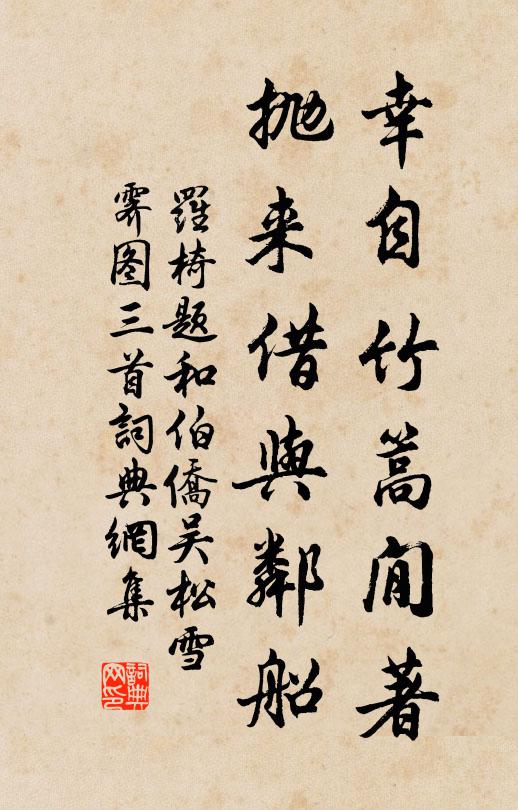 幸自竹篙閒著
抛来借與鄰船
羅椅题和伯僑吴松雪
霽图三首詞典網集
詞典网印